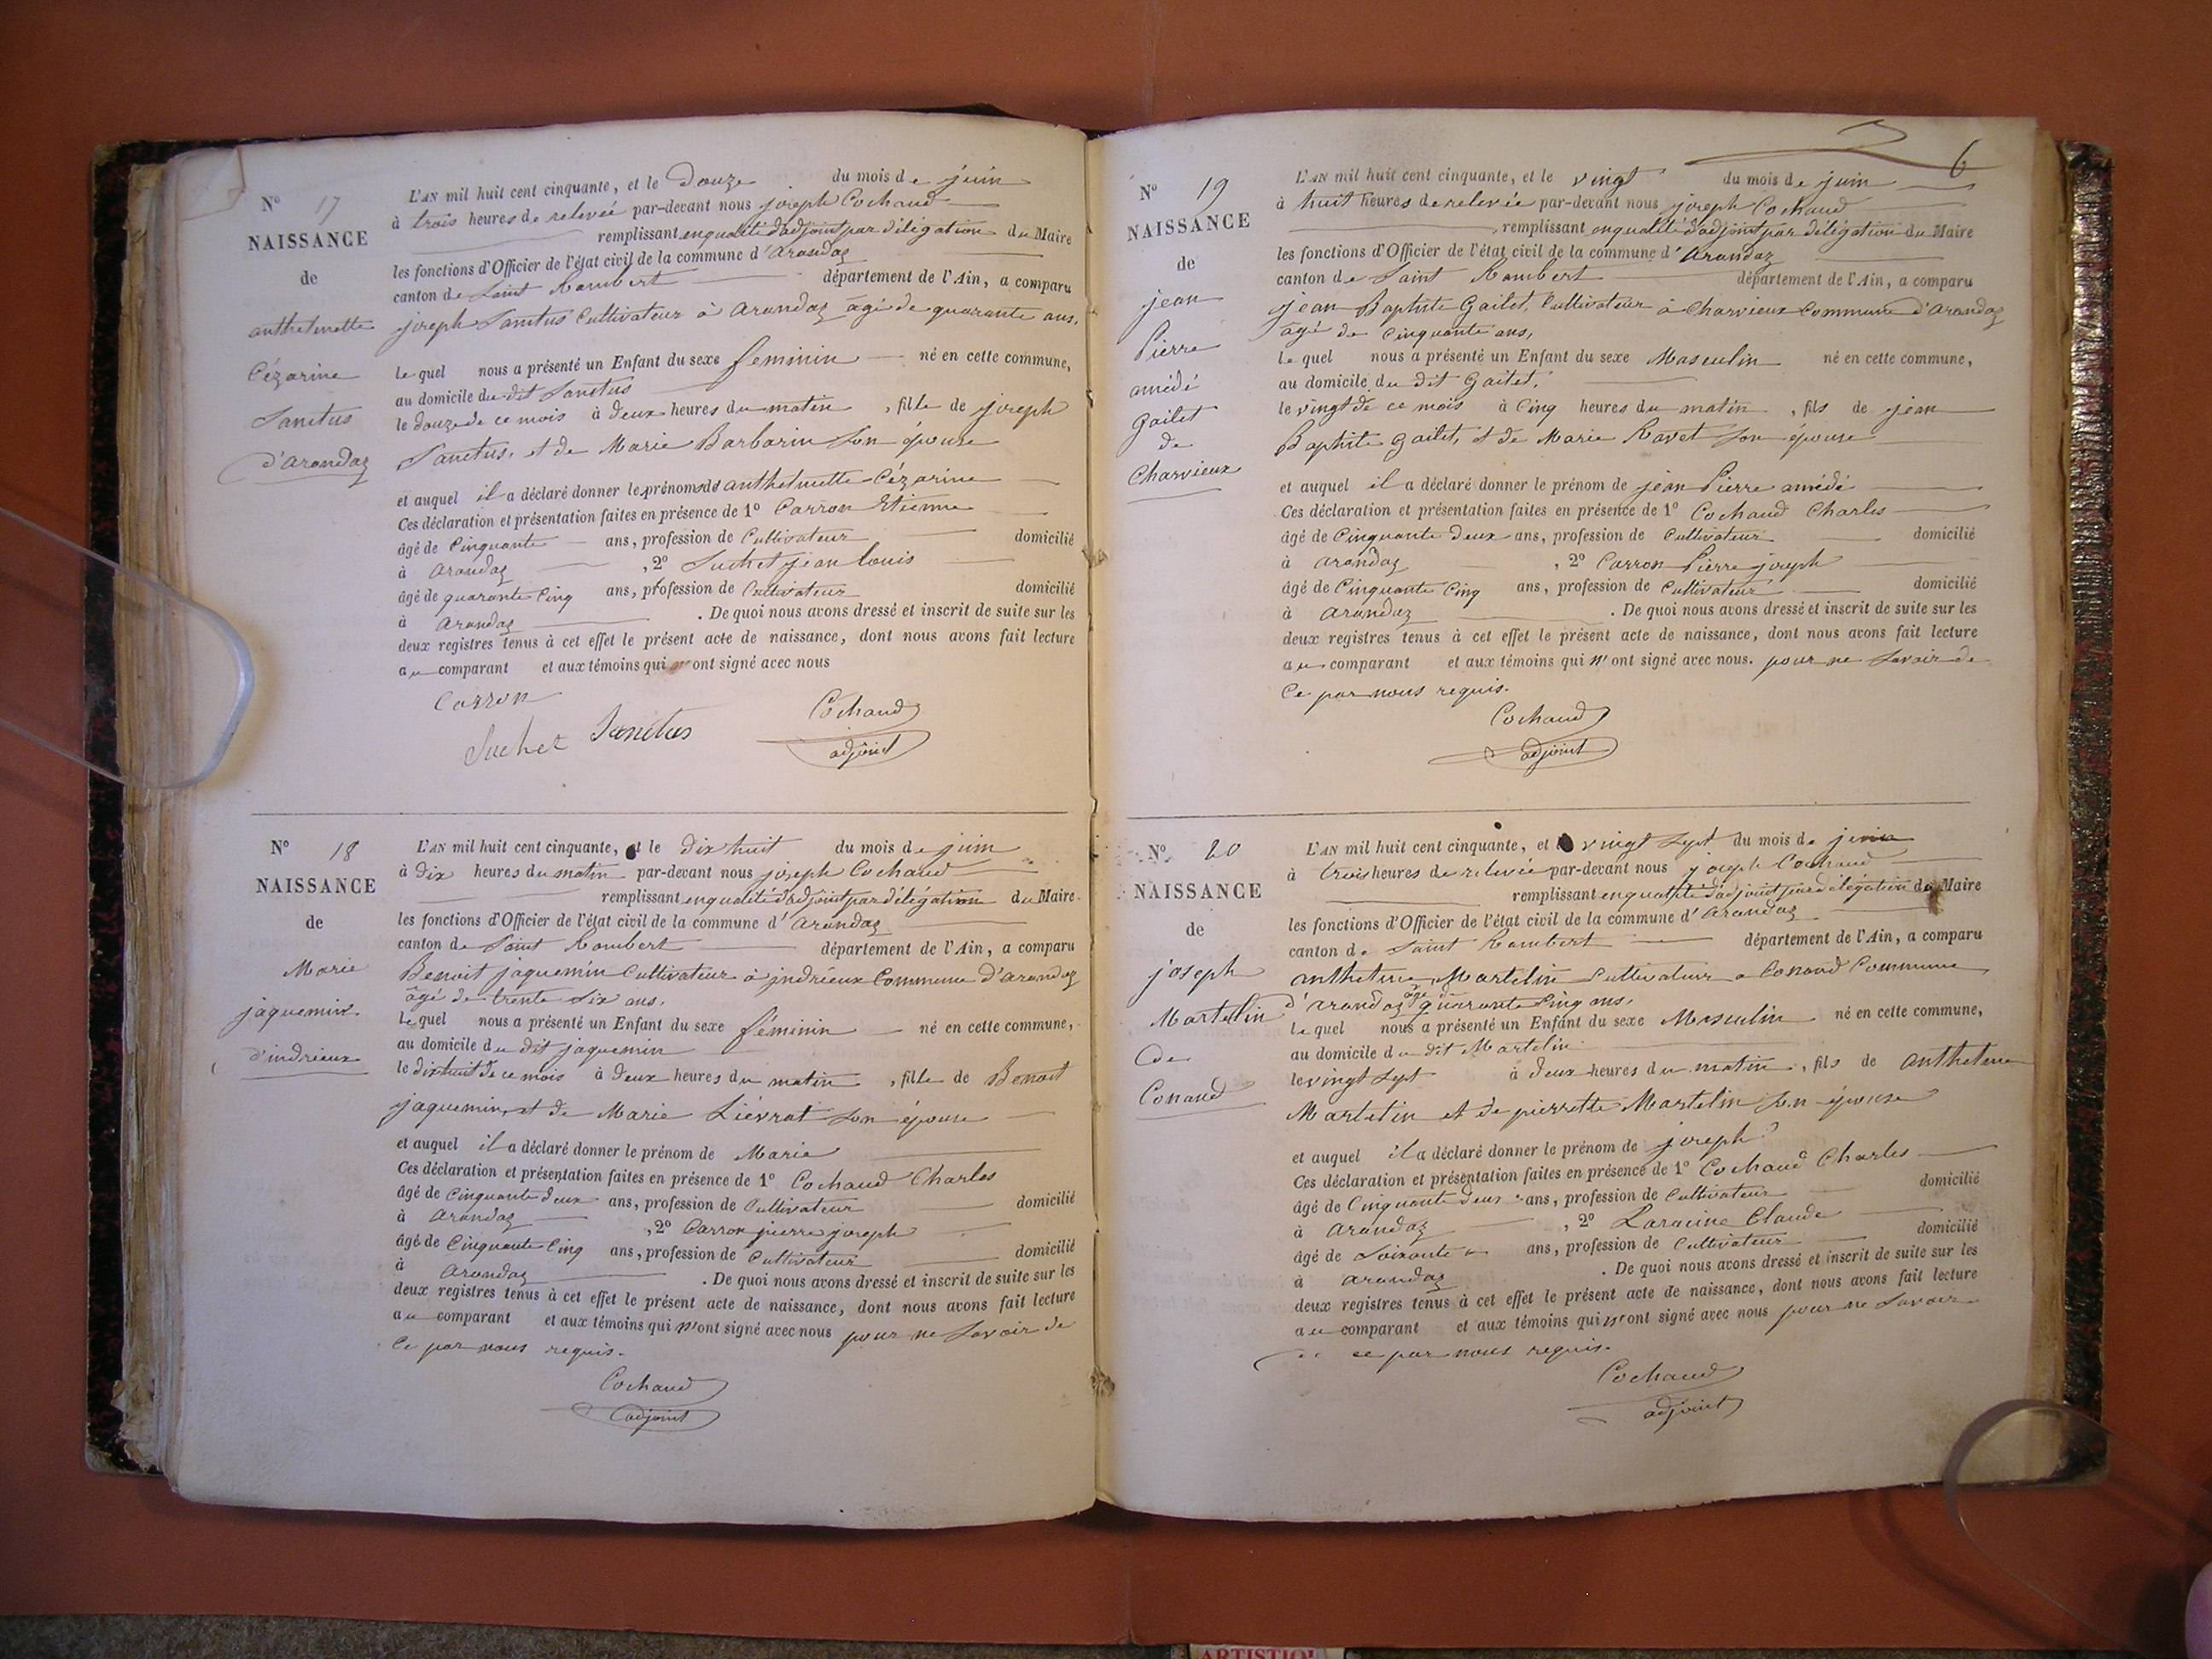 N° 17
NAISSANCE
de
anthelmette
Cézarine
Sanctus
d'arandaz
L'AN mil huit cent cinquante, et le Douze du mois de juin
à trois heures de relevée par-devant nous joseph Cochaud
remplissant en qualité d'adjoint par délégation du Maire
les fonctions d'Officier de l'état civil de la commune d'Arandaz
canton de Saint Rambert département de l'Ain, a comparu
joseph Sanctus Cultivateur à arandaz âgé de quarante ans,
le quel nous a présenté un Enfant du sexe feminin né en cette commune,
au domicile du dit Sanctus
le douze de ce mois à deux heures du matin, fille de joseph
Sanctus, et de Marie Barbarin son épouse
et auquel il a déclaré donner les prénoms de anthelmette Cézarine
Ces déclaration et présentation faites en présence de 1° Carron Etienne
âgé de Cinquante ans, profession de Cultivateur domicilié
à arandaz, 2° Suchet jean louis
âgé de quarante Cinq ans, profession de Cultivateur domicilié
à arandaz. De quoi nous avons dressé et inscrit de suite sur les
deux registres tenus à cet effet le présent acte de naissance, dont nous avons fait lecture
au comparant et aux témoins qui ont signé avec nous
Carron
Suchet Sanctus Cochaud
adjoint
N° 18
NAISSANCE
de
Marie
jaquemin
d'indrieux
L'AN mil huit cent cinquante, et le Dix huit du mois de juin
à dix heures du matin par-devant nous joseph Cochaud
remplissant en qualité d'adjoint par délégation du Maire
les fonctions d'Officier de l'état civil de la commune d'Arandaz
canton de Saint Rambert département de l'Ain, a comparu
Benoit jaquemin Cultivateur à indrieux Commune d'Arandaz
âgé de trente six ans,
le quel nous a présenté un Enfant du sexe féminin né en cette commune,
au domicile du dit jaquemin
le dix huit de ce mois à deux heures du matin, fille de Benoit
jaquemin, et de Marie Liévrat son épouse
et auquel il a déclaré donner le prénom de Marie
Ces déclaration et présentation faites en présence de 1° Cochaud Charles
âgé de Cinquante deux ans, profession de Cultivateur domicilié
à Arandaz, 2° Carron pierre joseph
âgé de Cinquante Cinq ans, profession de Cultivateur domicilié
à Arandaz. De quoi nous avons dressé et inscrit de suite sur les
deux registres tenus à cet effet le présent acte de naissance, dont nous avons fait lecture
au comparant et aux témoins qui n'ont signé avec nous pour ne savoir de
Ce par nous requis.
Cochaud
adjoint
6
N° 19
NAISSANCE
de
jean
Pierre
amédé
Gailet
de
Charvieux
L'AN mil huit cent cinquante, et le vingt du mois de juin
à huit heures de relevée par-devant nous joseph Cochaud
remplissant en qualité d'adjoint par délégation du Maire
les fonctions d'Officier de l'état civil de la commune d'Arandaz
canton de Saint Rambert département de l'Ain, a comparu
jean Baptiste Gailet, Cultivateur à Charvieux Commune d'Arandaz
âgé de Cinquante ans,
le quel nous a présenté un Enfant du sexe Masculin né en cette commune,
au domicile du dit Gailet,
le vingt de ce mois à Cinq heures du matin, fils de jean
Baptiste Gailet, et de Marie Ravet son épouse
et auquel il a déclaré donner le prénom de jean Pierre amédé
Ces déclaration et présentation faites en présence de 1° Cochaud Charles
âgé de Cinquante Deux ans, profession de Cultivateur domicilié
à arandaz, 2° Carron Pierre joseph
âgé de Cinquante Cinq ans, profession de Cultivateur domicilié
à Arandaz. De quoi nous avons dressé et inscrit de suite sur les
deux registres tenus à cet effet le présent acte de naissance, dont nous avons fait lecture
au comparant et aux témoins qui n'ont signé avec nous. pour ne savoir de
Ce par nous requis.
Cochaud
adjoint
N° 20
NAISSANCE
de
joseph
Martelin
de
Conand
L'AN mil huit cent cinquante, et vingt sept du mois de juin
à trois heures de relevée par-devant nous joseph Cochaud
remplissant en qualité d'adjoint par délégation du Maire
les fonctions d'Officier de l'état civil de la commune d'Arandaz
canton de Saint Rambert département de l'Ain, a comparu
anthelme Martelin Cultivateur à Conand Commune
d'arandaz âgé de quarante Cinq ans,
le quel nous a présenté un Enfant du sexe Masculin né en cette commune,
au domicile du dit Martelin
le vingt sept à deux heures du matin, fils de anthelme
Martelin et de pierrette Martelin son épouse
et auquel il a déclaré donner le prénom de joseph
Ces déclaration et présentation faites en présence de 1° Cochaud Charles
âgé de Cinquante deux ans, profession de Cultivateur domicilié
à arandaz, 2° Laracine Claude
âgé de Soixante ans, profession de Cultivateur domicilié
à arandaz. De quoi nous avons dressé et inscrit de suite sur les
deux registres tenus à cet effet le présent acte de naissance, dont nous avons fait lecture
au comparant et aux témoins qui n'ont signé avec nous pour ne savoir
de ce par nous requis.
Cochaud
adjoint